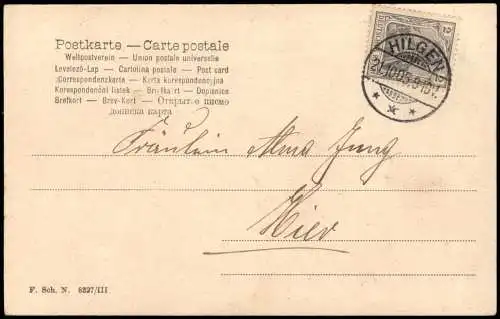 Postkarte — Carte postale
Weltpostverein — Union postale universelle
Levelező-Lap — Cartolina postale — Post card
Correspondenzkarte — Karta korespondencyjna
Korespondenční lístek — Briefkaart — Dopisnice
Brefkort — Brev-Kort — Открытое письмо
дописна карта
HILGEN
Fräulein Alma Jung
Hier
F. Sch. N. 8327/III